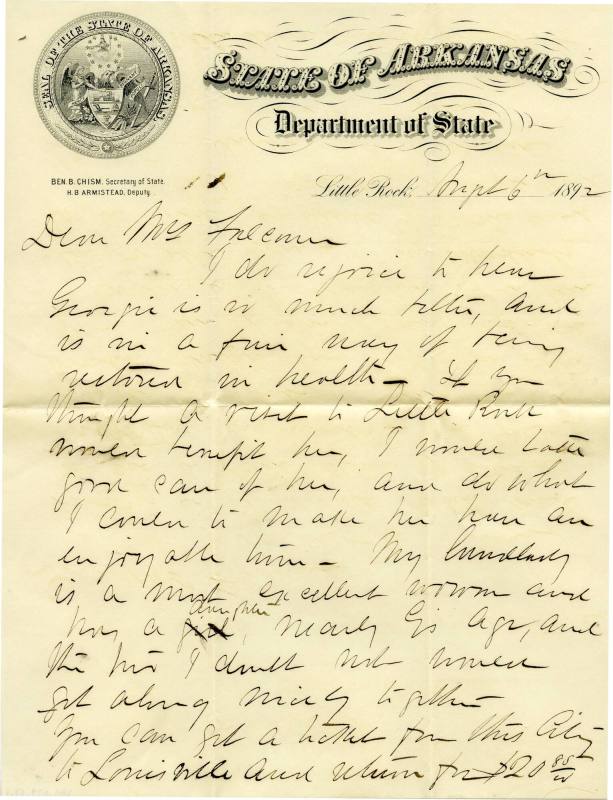 SEAL OF THE STATE OF ARKANSAS
STATE OF ARKANSAS
Department of State
BEN. B. CHISM, Secretary of State.
H. B. ARMISTEAD, Deputy.
Little Rock, Sept 6th 1892
Dear Mrs Falconer
I do rejoice to hear
Georgie is so much better, and
is in a fair way of being
restored in health - If you
thought a visit to Little Rock
would benefit her, I would take
good care of her, and do what
I could to make her have an
enjoyable time - My landlady
is a most excellent woman and
daughter
has a girl, nearly G's age, and
the two I doubt not would
get along nicely together
You can get a ticket from this City
to Louisville and return for $20 85/00